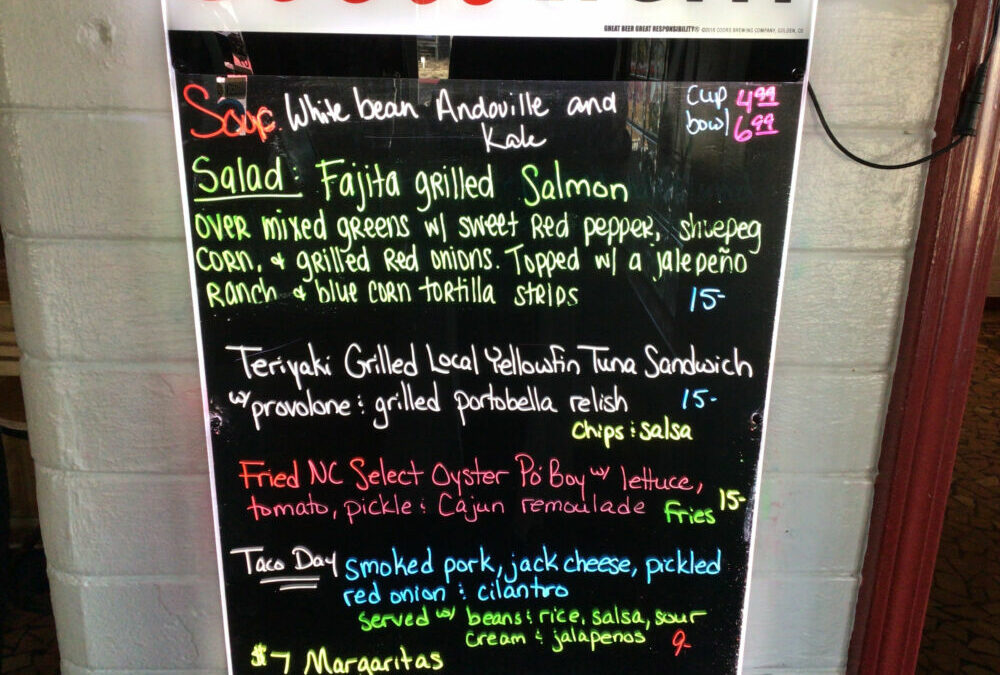 GREAT BEER GREAT RESPONSIBILITY® ©2016 COORS BREWING COMPANY, GOLDEN, CO
Soup. White bean Andoville and Kale
cup 4.99
bowl 6.99
Salad: Fajita grilled Salmon
over mixed greens w/ sweet red pepper, shoepeg
corn, & grilled red onions. Topped w/ a jalepeño
ranch & blue corn tortilla strips 15-
Teriyaki Grilled Local Yellowfin Tuna Sandwich
w/ provolone & grilled portobella relish 15-
chips & salsa
Fried NC Select Oyster Po' Boy w/ lettuce,
tomato, pickle & Cajun remoulade Fries 15-
Taco Day smoked pork, jack cheese, pickled
red onion & cilantro
served w/ beans & rice, salsa, sour
cream & jalapenos 9-
$7 Margaritas